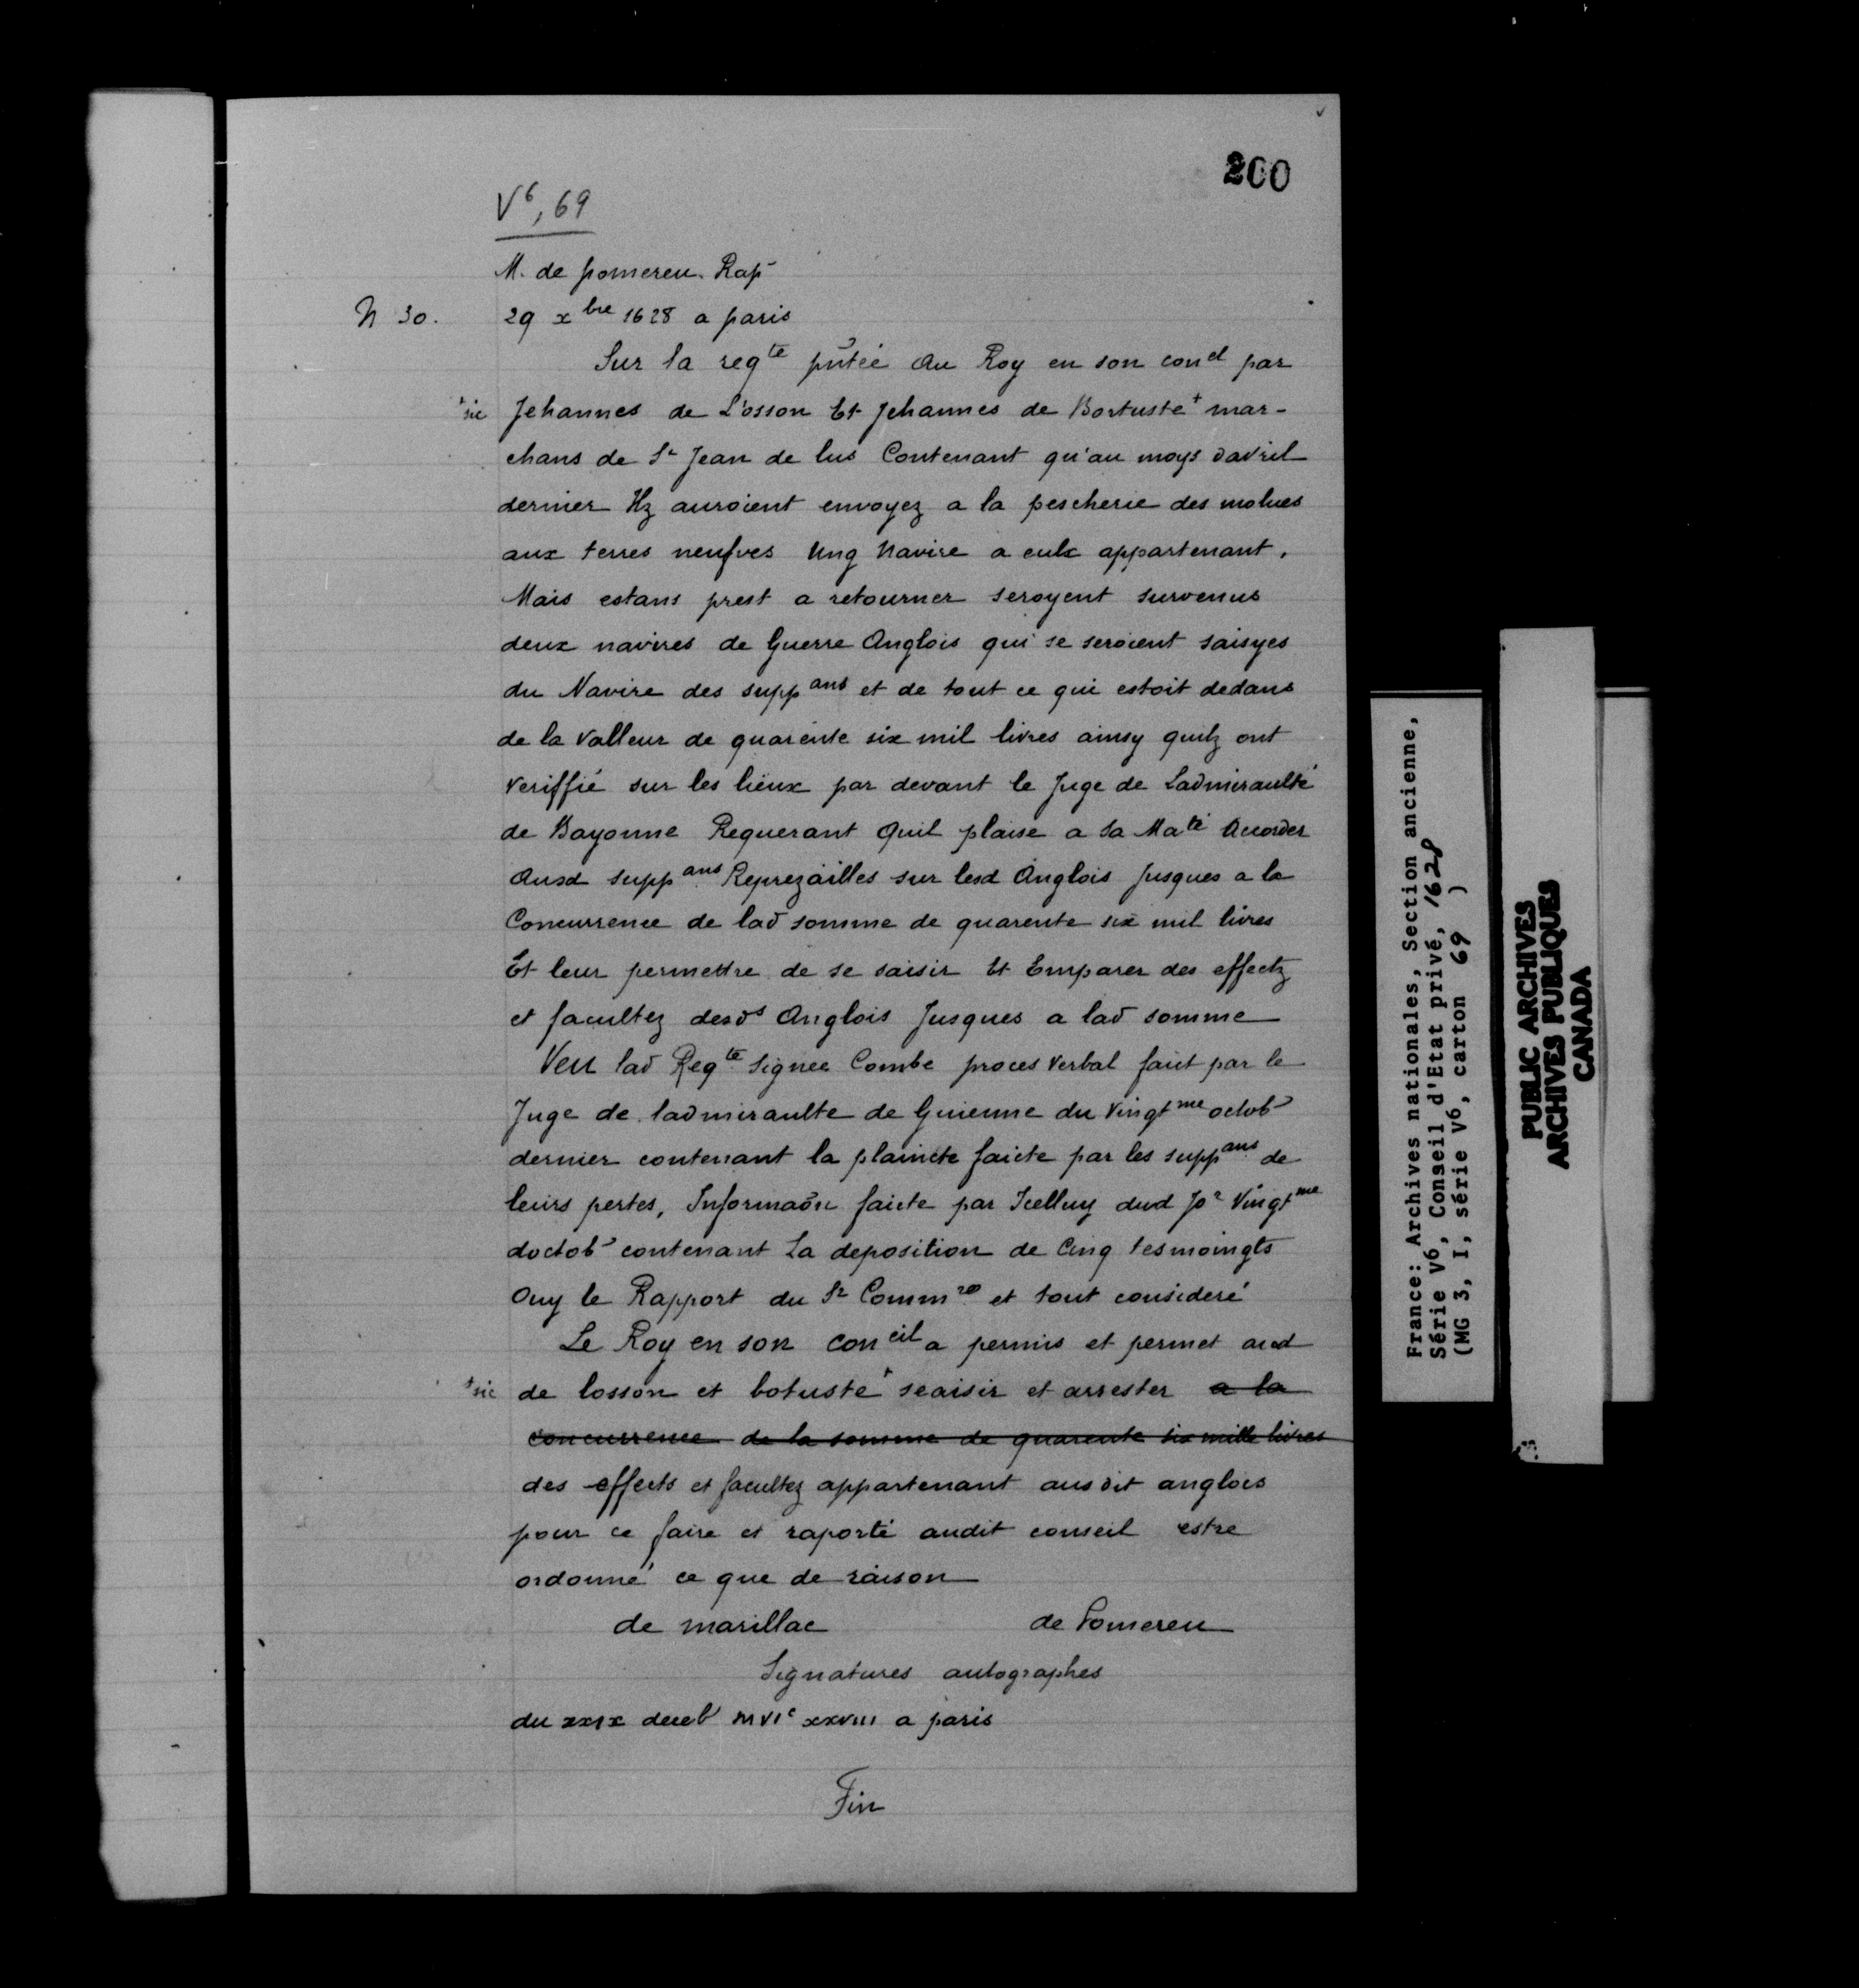 200
V⁶, 69
M. de pomereu. Rap
N 30. 29 xbre 1628 a paris
Sur la reqte pñtée au Roy en son conel par
+sic Jehannes de L'osson Et Jehannes de Bortuste+ mar-
chans de St Jean de lus Contenant qu'au moys davril
dernier Ilz auroient envoyez a la pescherie des molues
aux terres neufves Ung Navire a eulx appartenant,
Mais estans prest a retourner seroyent survenus
deux navires de Guerre Anglois qui se seroient saisyes
du Navire des suppans et de tout ce qui estoit dedans
de la Valleur de quarente six mil livres ainsy quilz ont
veriffié sur les lieux par devant le Juge de Ladmiraulté
de Bayonne Requerant Quil plaise a Sa Maté Accorder
Ausd suppans Reprezailles sur lesd Anglois Jusques a la
Concurrence de lad somme de quarente six mil livres
Et leur permettre de se saisir Et Emparer des effectz
et facultez desds Anglois Jusques a lad somme
Veu lad Reqte Signee Combe proces Verbal faict par le
Juge de ladmiraulte de Guienne du Vingtme octob
dernier contenant la plaincte faicte par les suppans de
leurs pertes, Informaõn faicte par Icelluy dud Jor Vingtme
doctob contenant La deposition de Cinq tesmoingts
Ouy le Rapport du Sr Commre et tout consideré
Le Roy en son conceil a permis et permet aud
+sic de losson et botuste+ seaisir et arrester a la
concurrence de la somme de quarente six mille livres
des effects et facultez appartenant ausdit anglois
pour ce faire et raporté audit conseil estre
ordonné ce que de raison
de marillac de Pomereu
Signatures autographes
du xxix deceb MVIc xxviii a paris
Fin
France: Archives nationales, Section ancienne,
Série V6, Conseil d'Etat privé, 1628
(MG 3, I, série V6, carton 69 )
PUBLIC ARCHIVES
ARCHIVES PUBLIQUES
CANADA